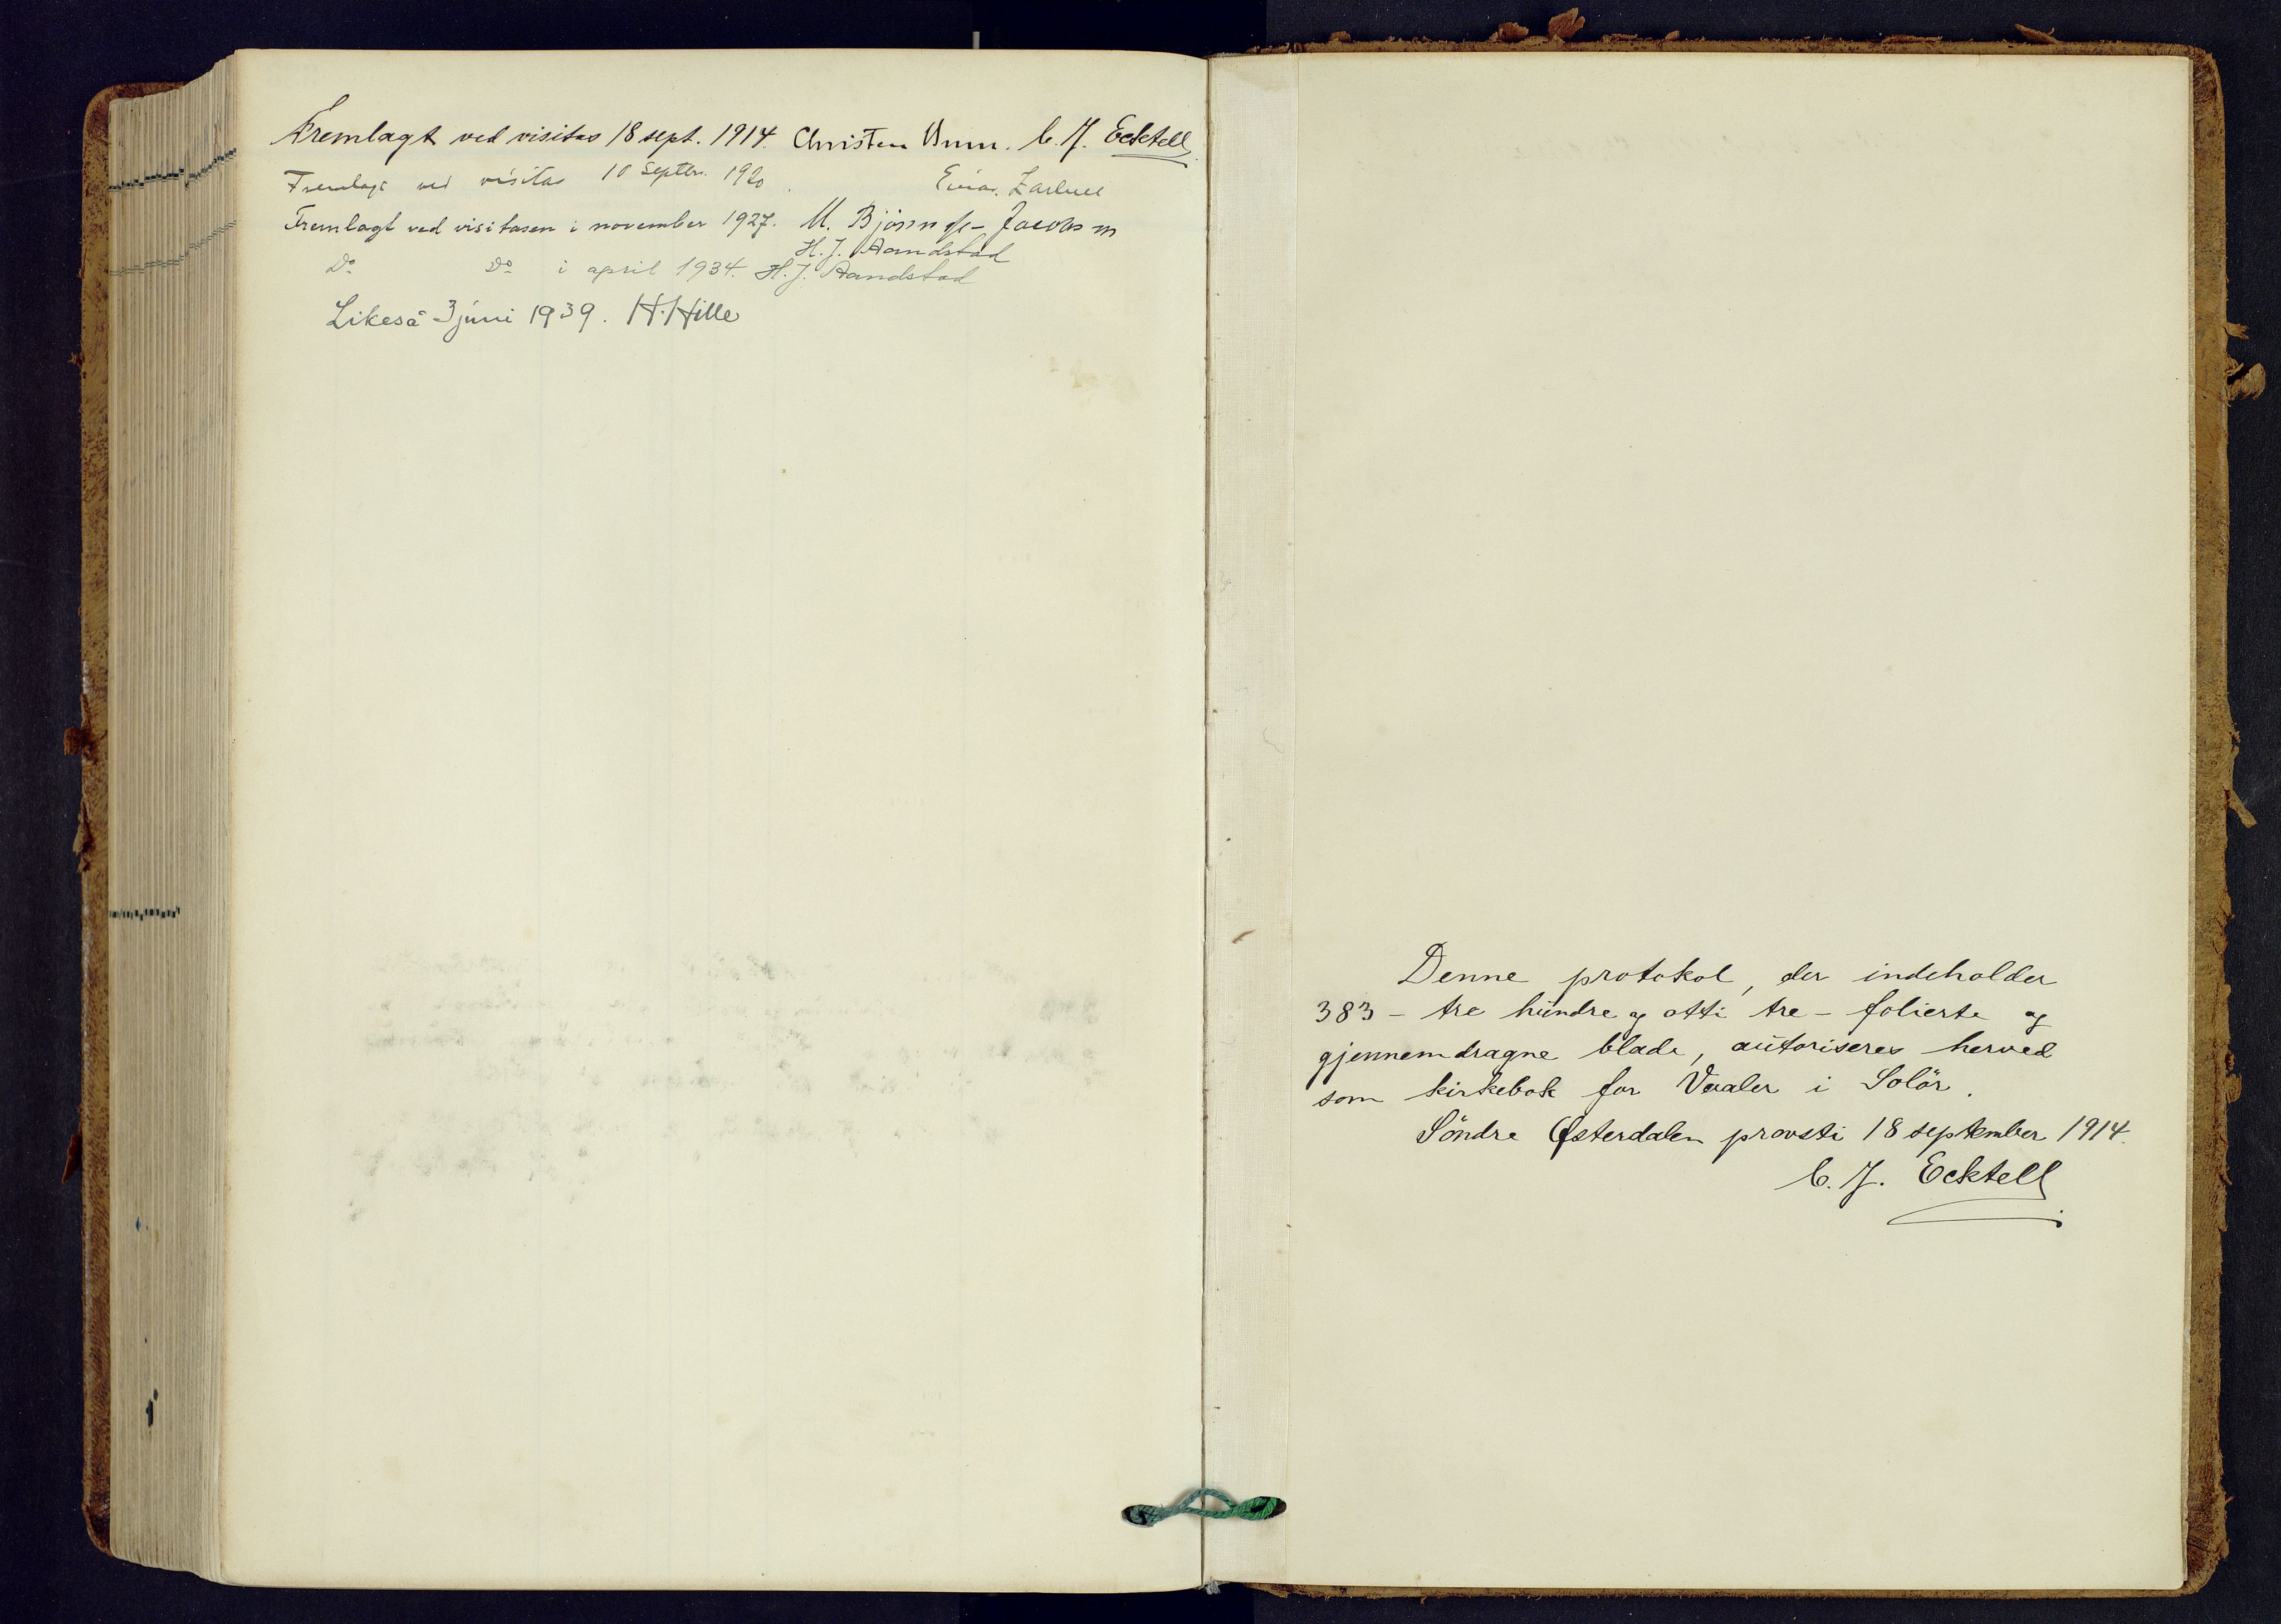 Fremlagt ved visitas 18 sept. 1914. Christen Brun. C. J. Ecktell
Fremlagt ved visitas 10 Septbr. 1920.
Fremlagt ved visitasen i november 1927. M. Bjønnes-Jacobsen
H. J. Aandstad
Do Do i april 1934. H. J. Aandstad
Likeså 3 juni 1939. H. Hille
Denne protokol, der indeholder
383 - tre hundre og otti tre - folierte og
gjennemdragne blade, autoriseres herved
som kirkebok for Vaaler i Solör.
Söndre Østerdalen provsti 18 september 1914.
C. J. Ecktell